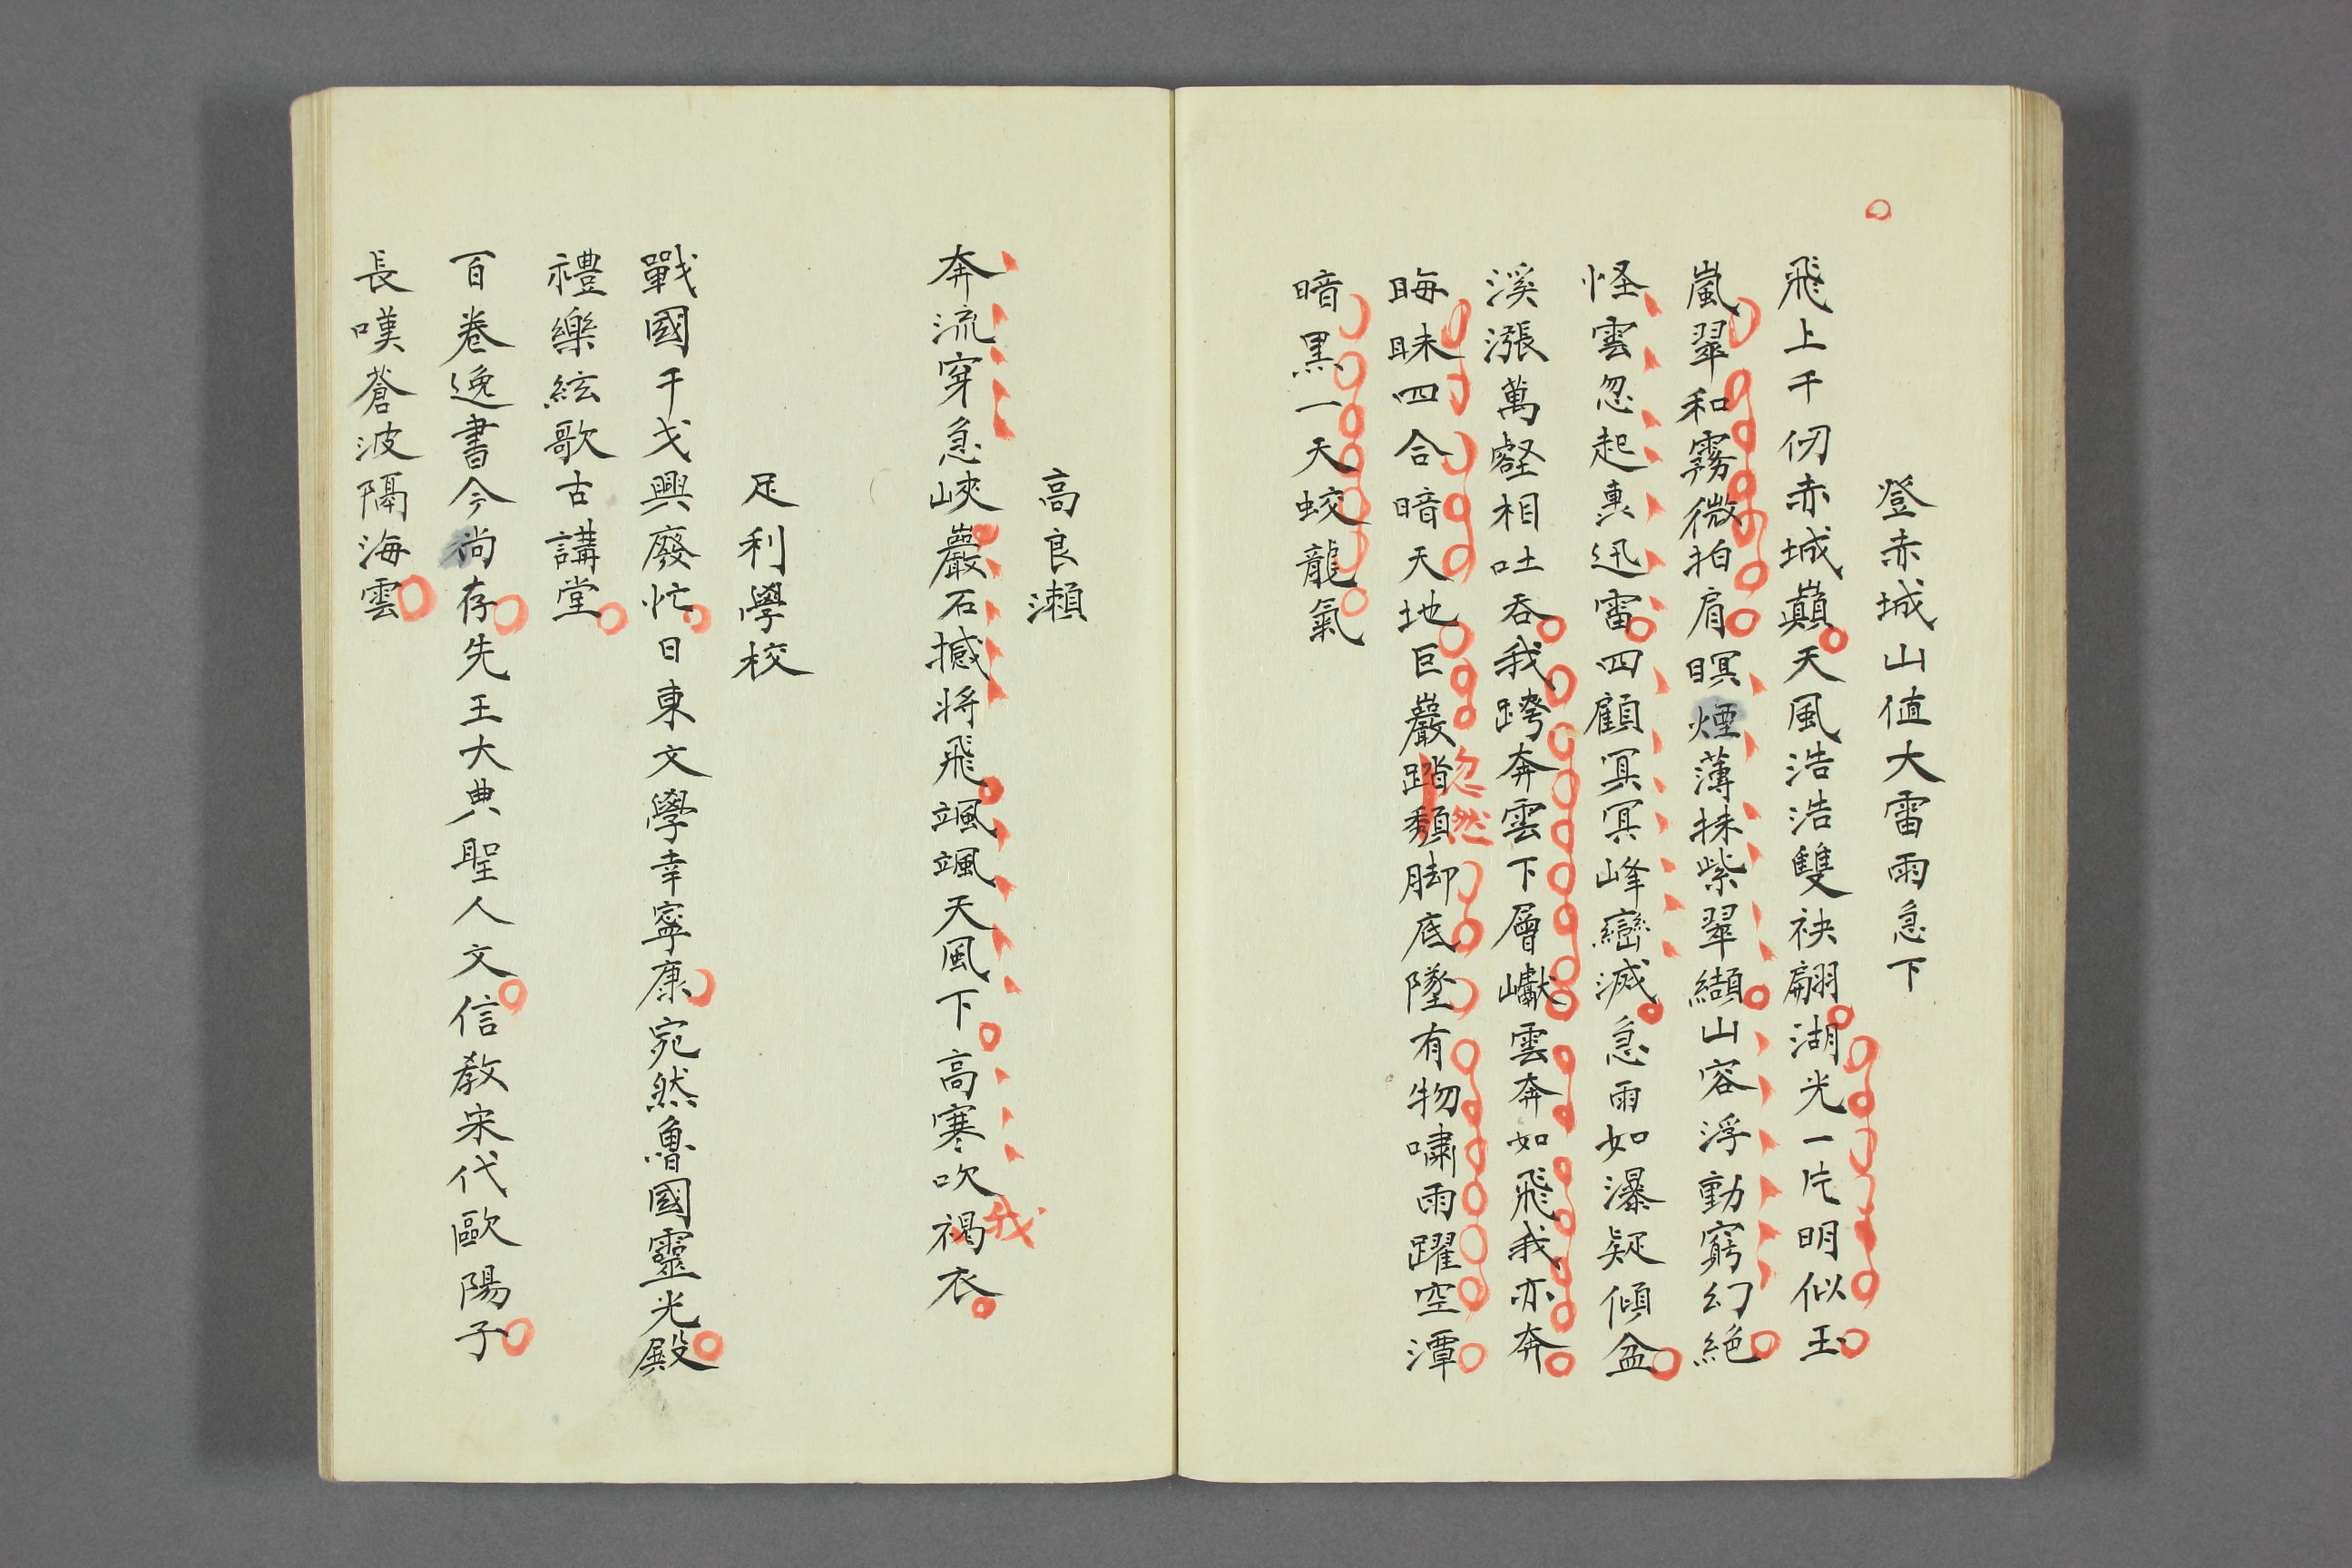 登赤城山値大雷雨急下
飛上千仞赤城巓天風浩浩雙袂翩湖光一片明似玉
嵐翠和霧微拍肩暝煙薄抹紫翠纈山容浮動窮幻絶
怪雲忽起輿迅雷四顧冥冥峰巒滅急雨如瀑疑傾盆
溪漲萬壑相吐呑我跨奔雲下層巘雲奔如飛我亦奔
晦昧四合暗天地巨巖踏頽脚底墜有物嘯雨躍空潭
忽然
暗黒一天蛟龍氣
高良瀬
奔流穿急峽巖石撼将飛颯颯天風下高寒吹褐衣
我
足利學校
戰國干戈興廢忙日東文學幸寧康宛然魯國靈光殿
禮樂絃歌古講堂
百卷逸書今尚存先王大典聖人文信教宋代歐陽子
長嘆蒼波隔海雲